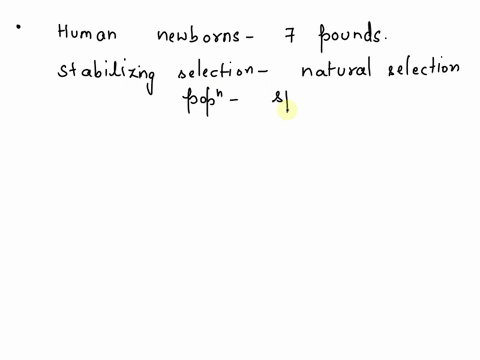 • Human newborns - 7 pounds.
stabilizing selection - natural selection
popⁿ -